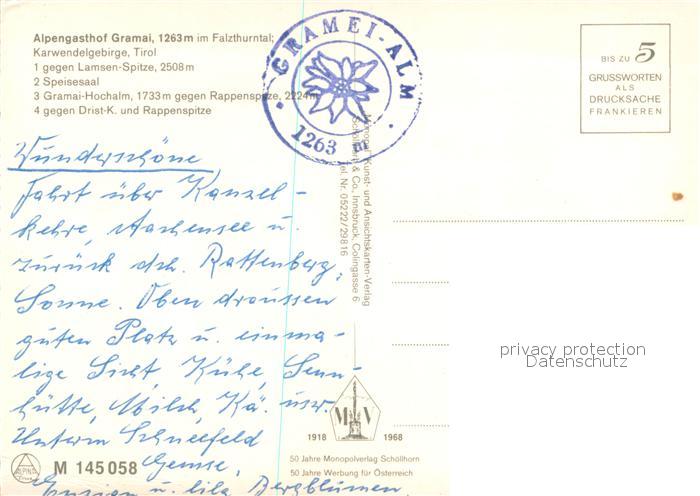 Alpengasthof Gramai, 1263 m im Falzthurntal;
Karwendelgebirge, Tirol
1 gegen Lamsen-Spitze, 2508 m
2 Speisesaal
3 Gramai-Hochalm, 1733 m gegen Rappenspitze, 2224 m
4 gegen Drist-K. und Rappenspitze
GRAMEI-ALM
1263 m
BIS ZU 5
GRUSSWORTEN
ALS
DRUCKSACHE
FRANKIEREN
Wunderschöne
Fahrt über Kanzel-
kehre, Aachensee u.
zurück dch. Rattenberg,
Sonne. Oben draussen
guten Platz u. einma-
lige Sicht, Kühe, Senn-
hütte, Milch, Kä. usw.
Unterm Schneefeld
Gemse,
Enzian u. lila Bergblumen.
Monopol Kunst- und Ansichtskarten-Verlag
Schöllhorn & Co., Innsbruck, Colingasse 6
Tel. Nr. 05222/29816
privacy protection
Datenschutz
M V
1918 1968
50 Jahre Monopolverlag Schöllhorn
50 Jahre Werbung für Österreich
ALPINA
M 145 058